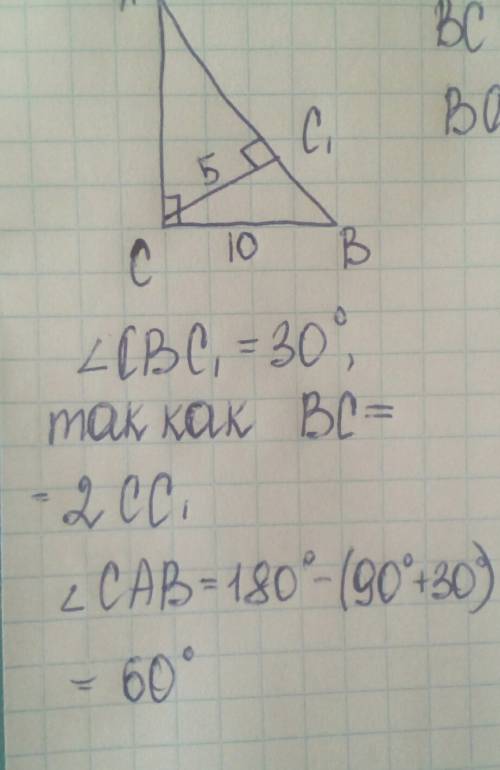 BC
5
C₁
C
10
B
∠CBC₁ = 30°,
так как BC =
= 2CC₁
∠CAB = 180° - (90° + 30°)
= 60°